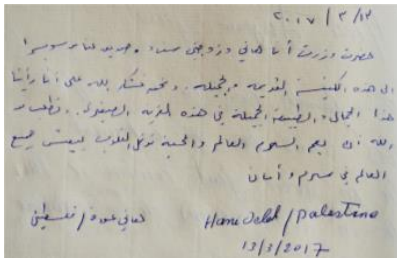 ٢٠١٧/٣/١٣
حضرت وزرت أنا هاني وزوجتي سعاد وصديقنا من سويسرا
الى هذه الكنيسة القديمة والجميلة . ونحن نشكر الله على أننا رأينا
هذا الجمال والطبيعة الجميلة في هذه القرية الصغيرة . نطلب من
الله أن يعم السلام العالم والمحبة القلوب ليعيش جميع
العالم في سلام وأمان
هاني عودة / فلسطين
Hani Odeh / Palestina
13/3/2017